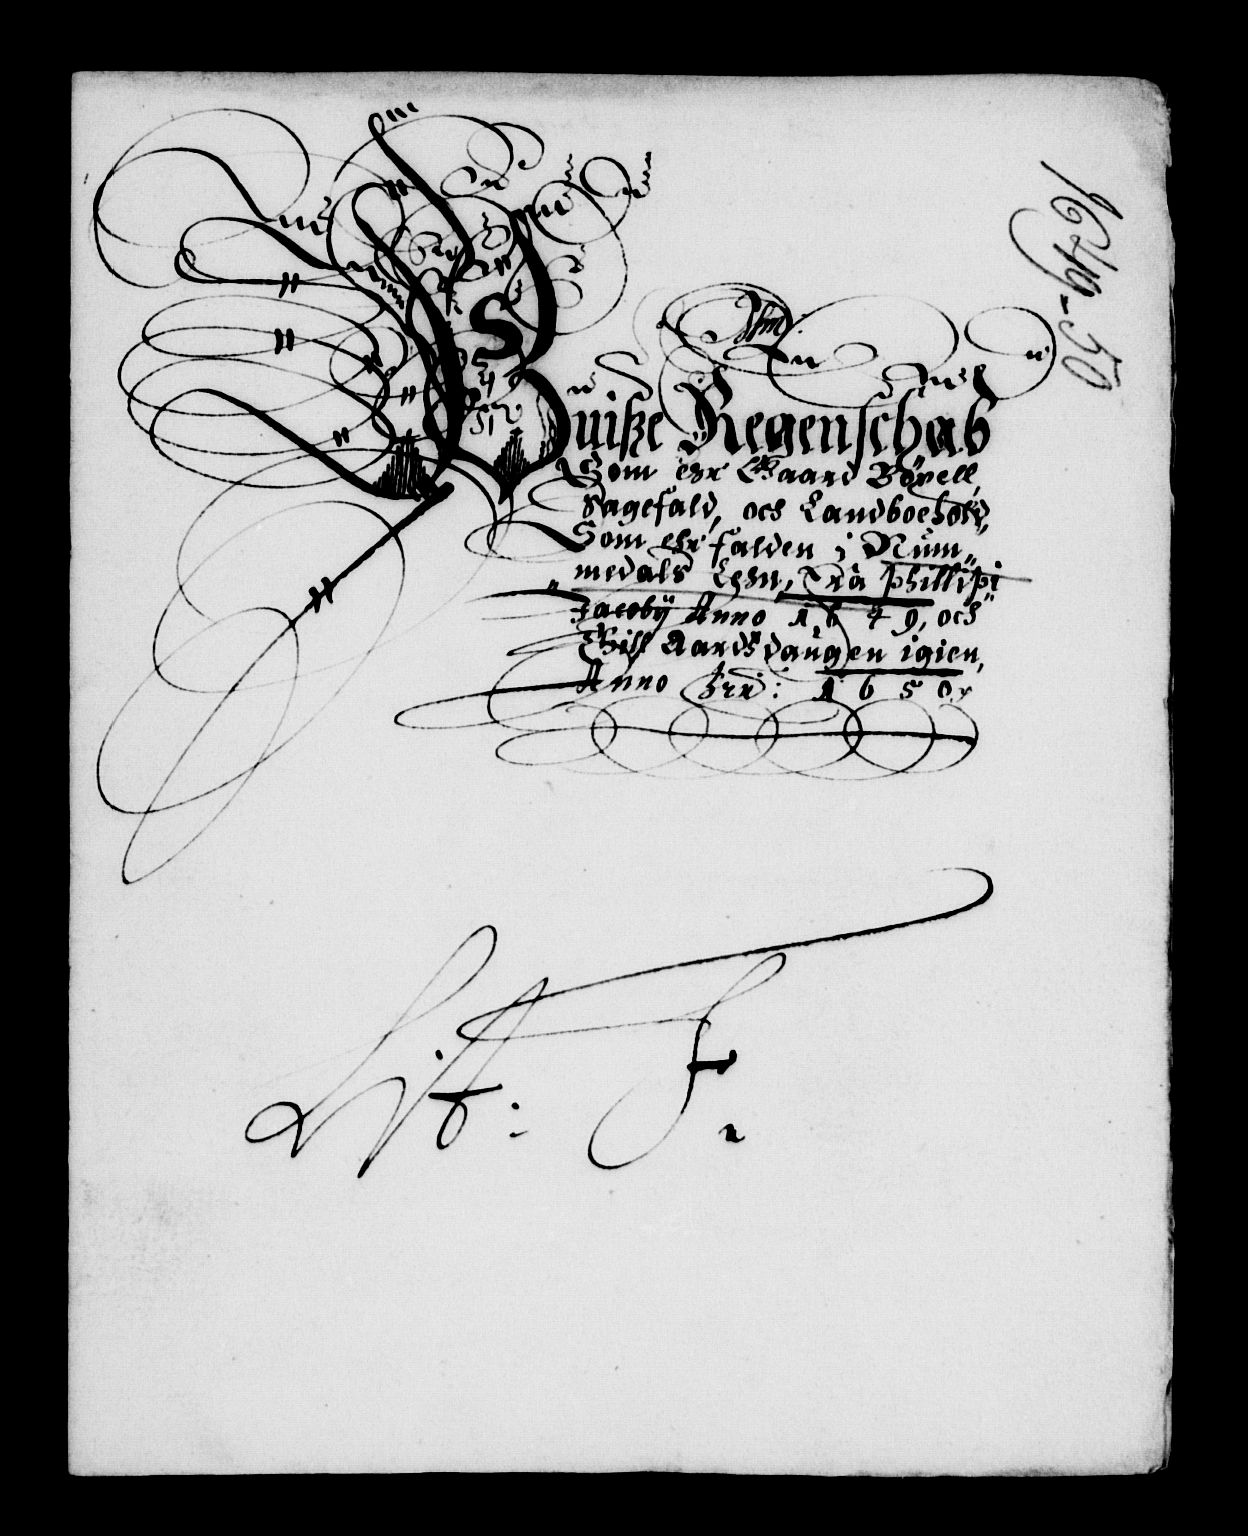 1649-50
Wiisze Regenschab
Som ehr Gaard Böxell,
Sagefald, och Landboehold,
Som ehr falden i Num„
medals Lehn, Fra Phillipi
Jacobij Anno 1649, och
Till Aardsdaugen igien,
Anno 1650
Litt: F.